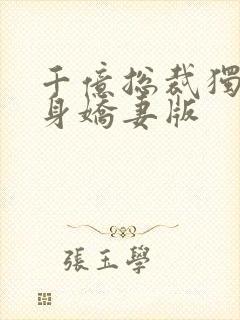 千億總裁獨
身嬌妻版
張玉學